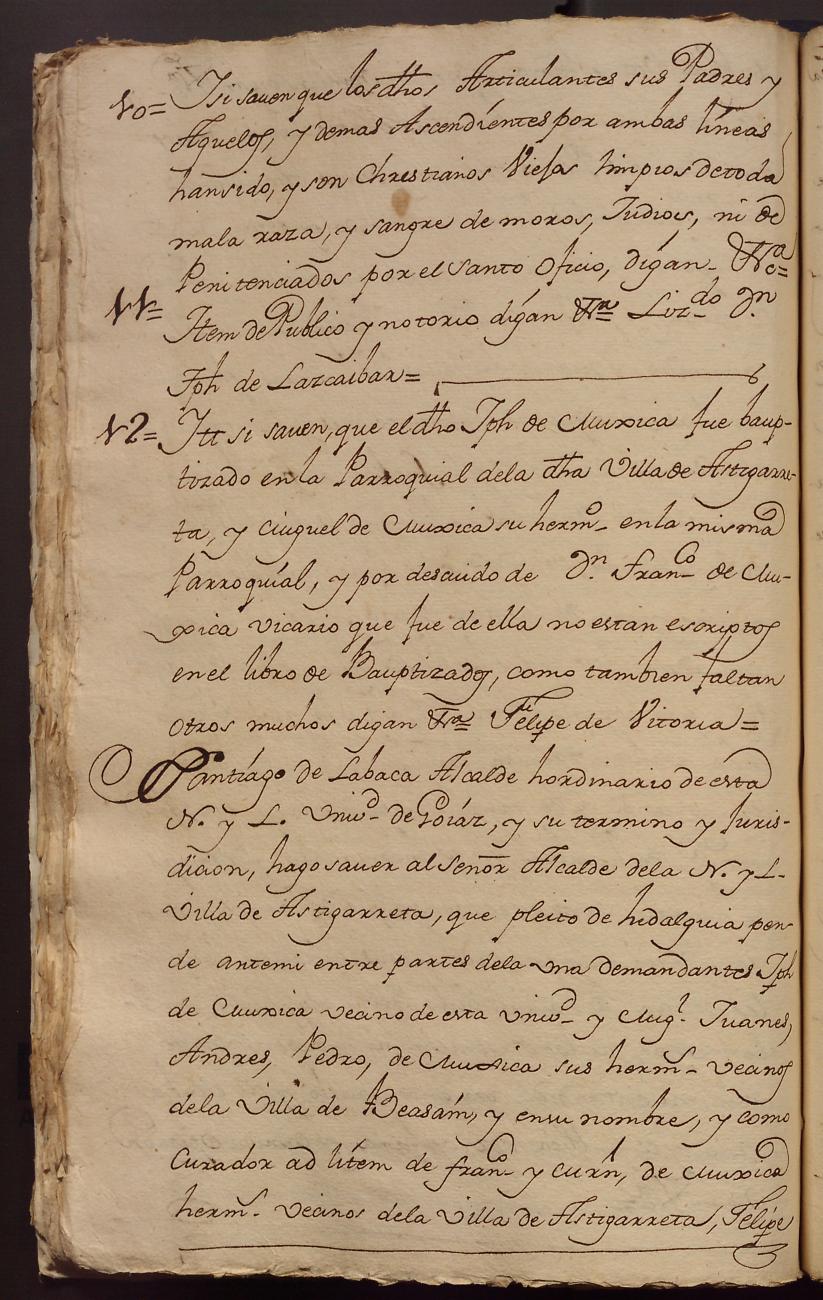 10= Isi sauen que los dhos Articulantes sus Padres y
Aguelos, y demas Ascendientes por ambas lineas
han sido, y son Christianos Viejos limpios de toda
mala raza, y sangre de moros, Judios, ni de
Penitenciados por el Santo Oficio, digan
11= Item de Publico y notorio digan Lizdo Dn
Jph de Lazcaibar=
12= Itt si sauen, que el dho Jph de Muxica fue baup-
tizado en la Parroquial dela dha Villa de Astigarre-
ta, y Miguel de Muxica su hermo en la misma
Parroquial, y por descuido de Dn Franco de Mu-
xica vicario que fue de ella no estan escriptos
en el libro de Bauptizados, como tambien faltan
otros muchos digan Felipe de Vitoria=
Santiago de Labaca Alcalde hordinario de esta
N. y L. Univd de Goiaz, y su termino y Juris-
dicion, hago sauer al Señor Alcalde dela N. y L.
Villa de Astigarreta, que pleito de hidalguia pen-
de antemi entre partes dela una demandantes Jph
de Muxica vecino de esta Univd y Migl Juanes,
Andres, Pedro, de Muxica sus herms vecinos
dela Villa de Beasain, y en su nombre, y como
Curador ad litem de Franco y de Muxica
herms vecinos dela Villa de Astigarreta, Felipe